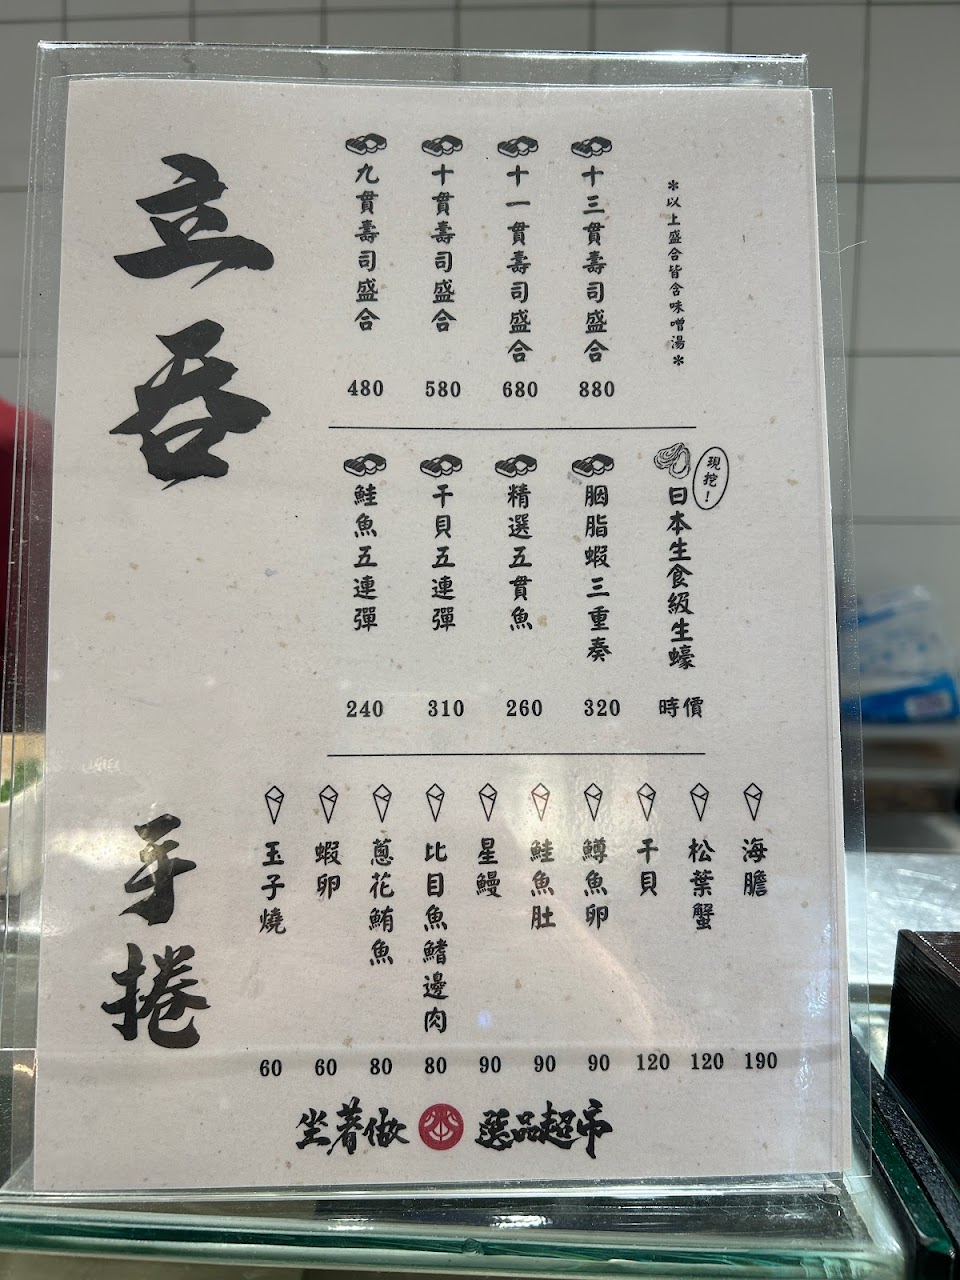 立吞
九貫壽司盛合
480
十貫壽司盛合
580
十一貫壽司盛合
680
十三貫壽司盛合
880
*以上盛合皆含味噌湯*
鮭魚五連彈
240
干貝五連彈
310
精選五貫魚
260
胭脂蝦三重奏
320
現挖!
日本生食級生蠔
時價
手捲
玉子燒
60
蝦卵
60
蔥花鮪魚
80
比目魚鰭邊肉
80
星鰻
90
鮭魚肚
90
鱒魚卵
90
干貝
120
松葉蟹
120
海膽
190
坐著做 選品超市